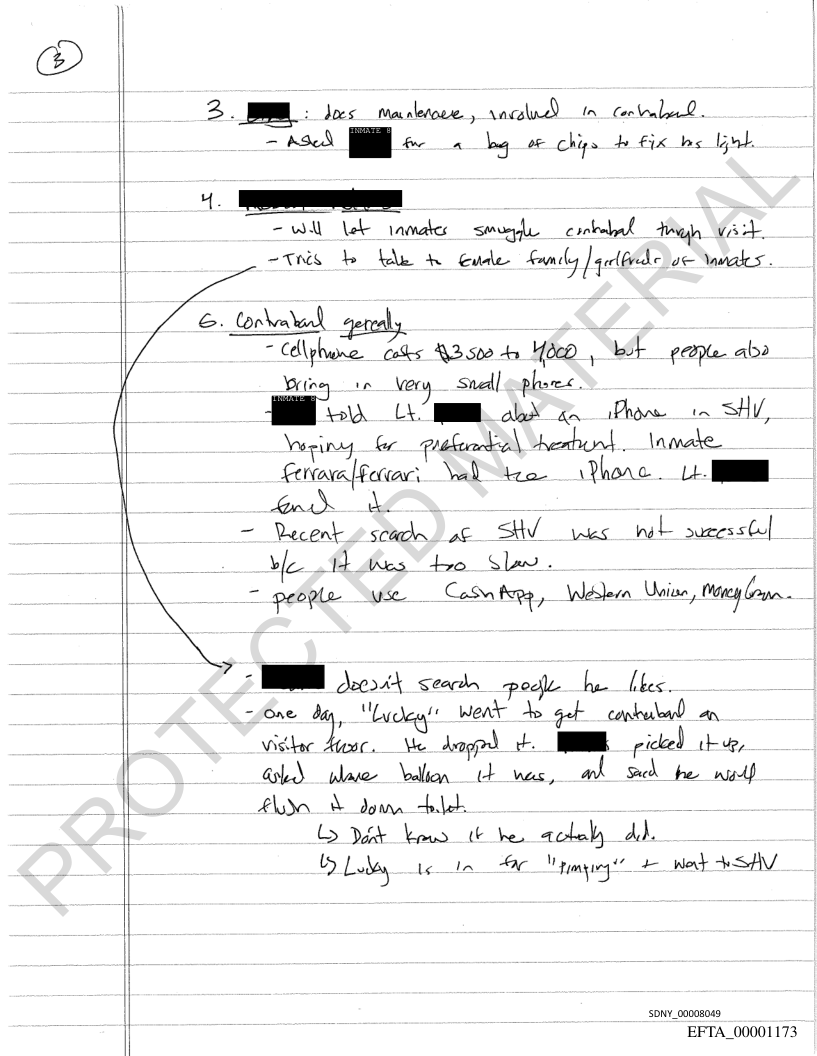 3
3. : does maintenance, involved in contraband.
- Asked INMATE 8 for a bag of chips to fix his light.
4.
- Will let inmates smuggle contraband through visit.
- Tries to talk to female family/girlfriends of inmates.
6. Contraband generally
- Cellphone costs $3500 to 4,000, but people also
bring in very small phones.
- INMATE 8 told Lt. about an iPhone in SHU,
hoping for preferential treatment. Inmate
Ferrara/Ferrari had the iPhone. Lt.
found it.
- Recent search of SHU was not successful
b/c it was too slow.
- people use CashApp, Western Union, MoneyGram.
- doesn't search people he likes.
- one day, "Lucky" went to get contraband on
visitor floor. He dropped it. picked it up,
asked whose balloon it was, and said he would
flush it down toilet.
↳ Don't know if he actually did.
↳ Lucky is in for "pimping" + went to SHU
PROTECTED MATERIAL
SDNY_00008049
EFTA_00001173